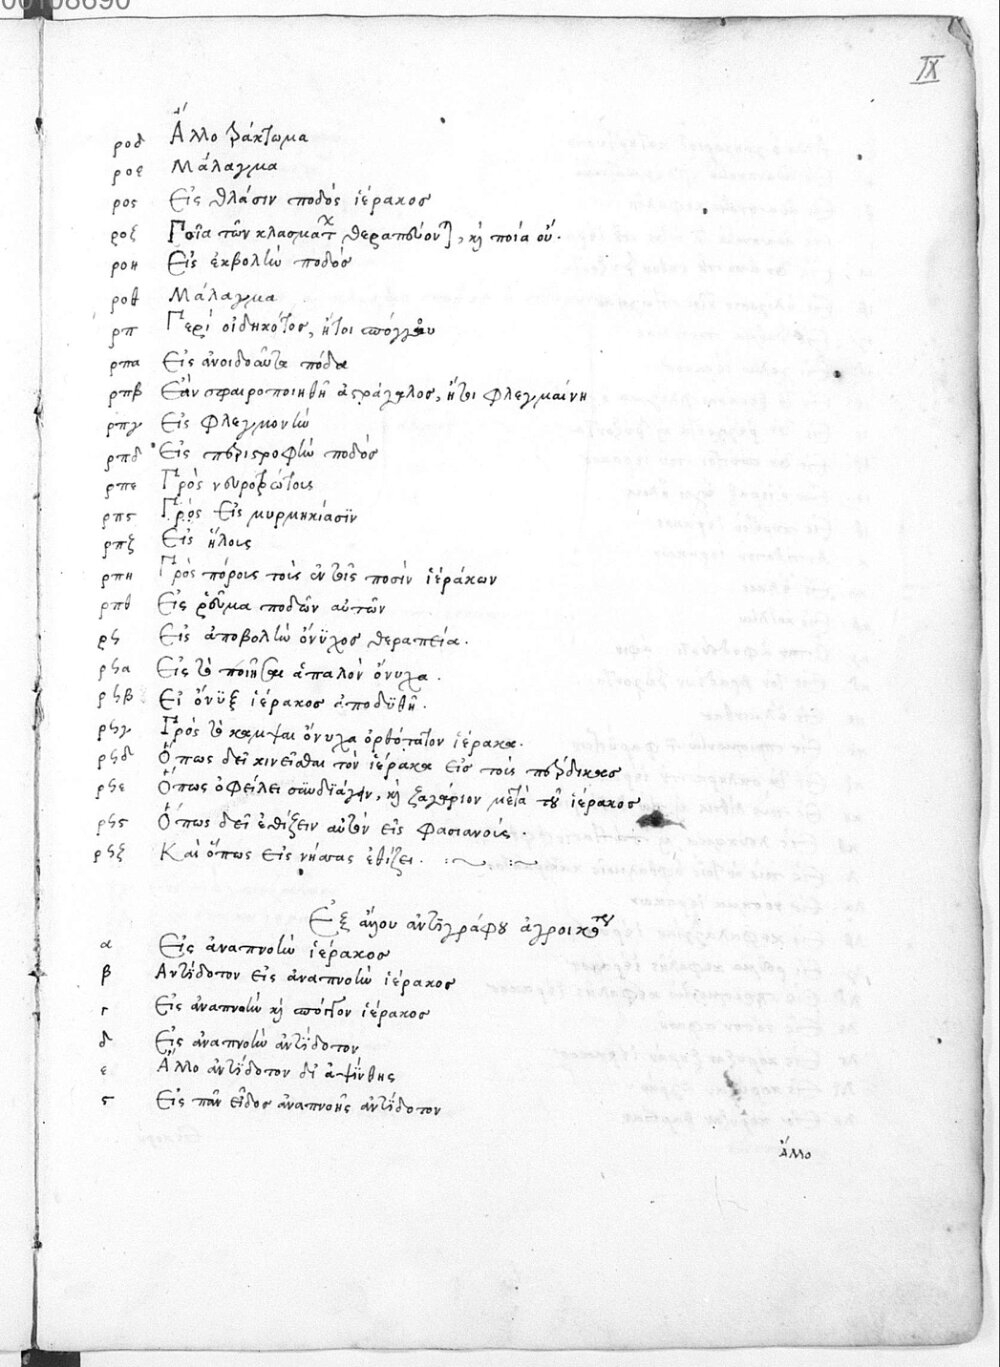 00108690
IX
ροδ Ἄλλο βάκτωμα
ροε Μάλαγμα
ρος Εἰς θλάσιν ποδὸς ἱέρακος
ροζ Ποῖα τῶν κλασμάτ θεραπευόντ, κὴ ποία οὔ.
ροη Εἰς ἐκβολὴν ποδὸς
ροθ Μάλαγμα
ρπ Περὶ οἰδηκότος, ἤτοι σπόγγου
ρπα Εἰς ἀνοιδοῦντα πόδα
ρπβ Ἐὰν σφαιροποιηθῆ ἀστράγαλος, ἤτοι φλεγμαίνη
ρπγ Εἰς φλεγμονὴν
ρπδ Εἰς περιστροφὴν ποδὸς
ρπε Πρὸς νευροτρώτους
ρπς Πρὸς Εἰς μυρμηκίασϊν
ρπζ Εἰς ἥλους
ρπη Πρὸς πόρους τοὺς ἐν τοῖς ποσὶν ἱεράκων
ρπθ Εἰς ῥεῦμα ποδῶν αὐτῶν
ρϟ Εἰς ἀποβολὴν ὄνυχος θεραπεία.
ρϟα Εἰς τὸ ποιῆσαι ἁπαλὸν ὄνυχα.
ρϟβ Εἰ ὄνυξ ἱέρακος ἀποδυθῆ.
ρϟγ Πρὸς τὸ καμψαι ὄνυχα ὀρθόταιον ἱέρακα.
ρϟδ Ὅπως δεῖ κινεῖσθαι τὸν ἱέρακα εἰς τοὺς πέρδικας
ρϟε Ὅπως ὀφείλει συνδϊάγειν, κὴ ζαγάριον μετὰ τοῦ ἱέρακος
ρϟς Ὅπως δεῖ ἐθίζειν αὐτὸν εἰς φασιανούς.
ρϟζ Καὶ ὅπως εἰς νήσσας ἐθίζει.
Ἐξ ἄλλου ἀντιγράφου ἀγροικοτ
α Εἰς ἀναπνοὴν ἱέρακος
β Αντίδοτον εἰς ἀναπνοὴν ἱέρακος
γ Εἰς ἀναπνοὴν κὴ ἱέρακος
δ Εἰς ἀναπνοὴν ἀντίδοτον
ε Ἄλλο ἀντίδοτον δι ἀψίνθης
ς Εἰς πᾶν εἶδος ἀναπνοῆς ἀντίδοτον
ἄλλο